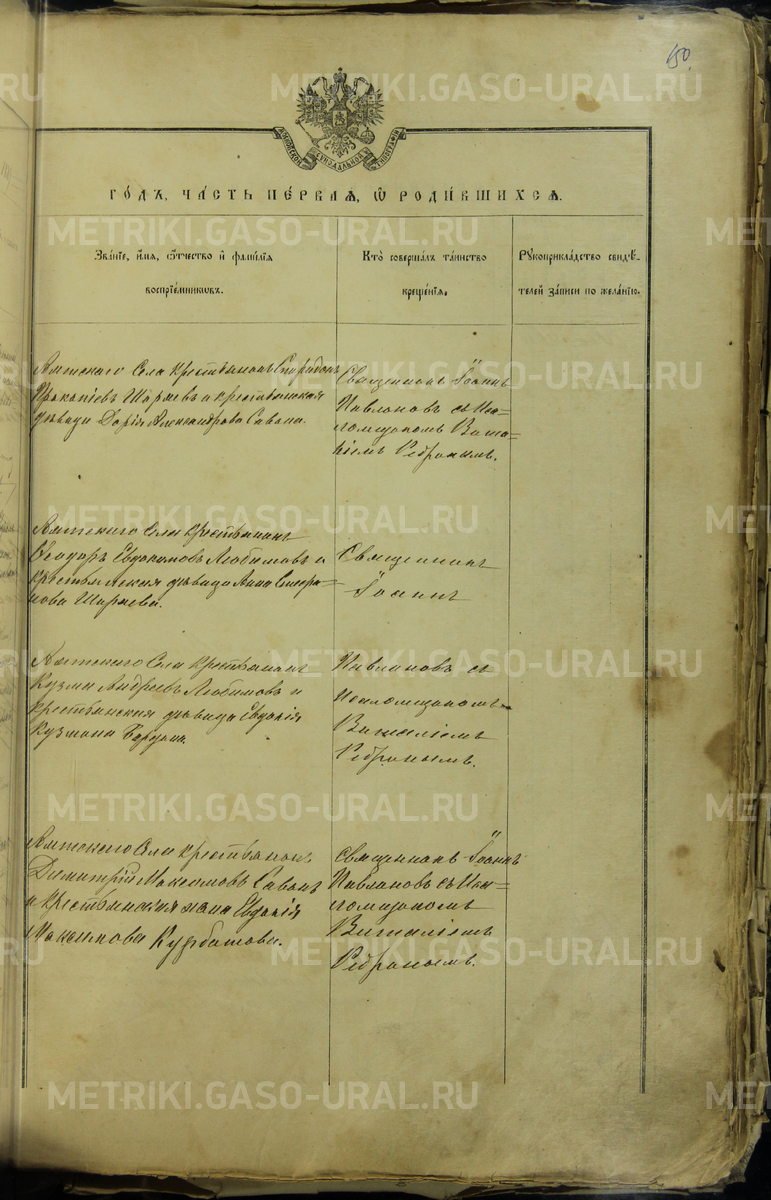 150.
МОСКОВСКОЙ СѴНОДАЛЬНОЙ ТИПОГРАФІИ
ГОДЪ, ЧАСТЬ ПЕРВАЯ, Ѿ РОДИВШИХСЯ.
Званіе, имя, ѻтчество и фамилія
воспріемникѡвъ.
Кто совершалъ таинство
крещенія.
Рꙋкоприкладство свидѣ-
телей записи по желанію.
Аятскаго Села крестьянинъ Спиридонъ
Прокопіевъ Ширяевъ и крестьянская
дѣвица Дарія Александрова Савина.
Священникъ Іоаннъ
Павлиновъ съ Пса-
ломщикомъ Вита-
ліемъ Ребринымъ.
Аятскаго Села крестьянинъ
Ѳеодоръ Евдокимовъ Любимовъ и
крестьянская дѣвица Анна
Ширяева.
Священникъ
Іоаннъ
Аятскаго Села крестьянинъ
Кузма Андреевъ Любимовъ и
крестьянская дѣвица Евдокія
Кузмина
Павлиновъ съ
Псаломщикомъ
Виталіемъ
Ребринымъ.
Аятскаго Села крестьянинъ
Димитрій Максимовъ Савинъ
и крестьянская жена Евдокія
Максимова Курбатова.
Священникъ Іоаннъ
Павлиновъ съ Пса-
ломщикомъ
Виталіемъ
Ребринымъ.
METRIKI.GASO-URAL.RU